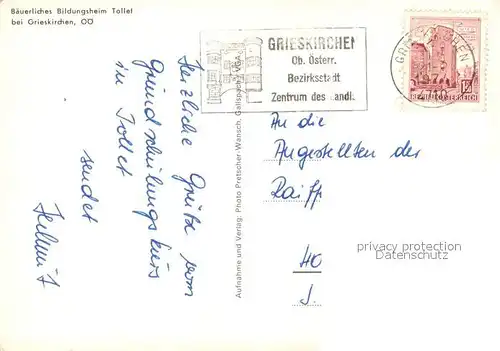 Bäuerliches Bildungsheim Tollet
bei Grieskirchen, OÖ
GRIESKIRCHEN
Ob. Österr.
Bezirksstadt
Zentrum des Landl.
GRIESKIRCHEN
REPUBLIK ÖSTERREICH
Herzliche Grüße vom
Grundschulungskurs
in Tollet
sendet
Helmut
Aufnahme und Verlag: Photo Pretscher-Wänsch, Gallspach
An die
Angestellten der
Raiff
40
J.
privacy protection
Datenschutz